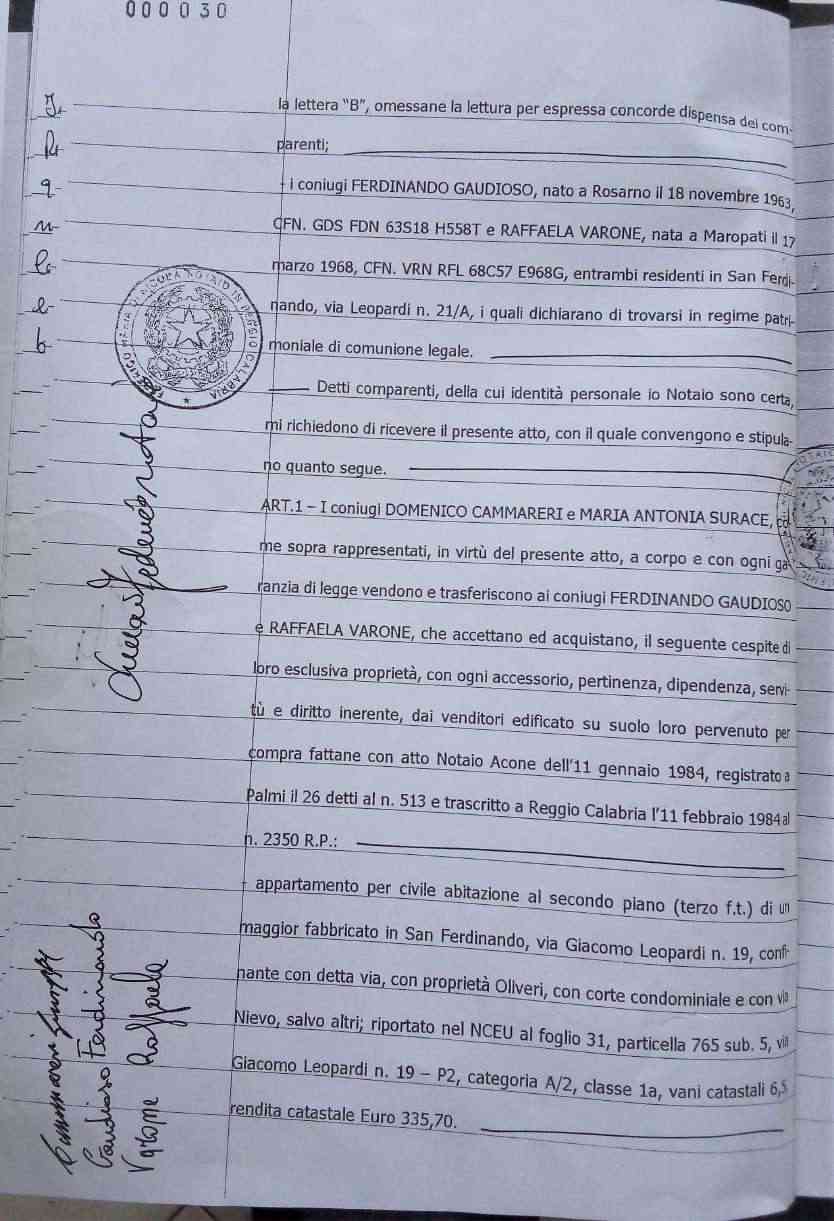 000030
la lettera "B", omessane la lettura per espressa concorde dispensa dei com-
parenti;
- i coniugi FERDINANDO GAUDIOSO, nato a Rosarno il 18 novembre 1963,
CFN. GDS FDN 63S18 H558T e RAFFAELA VARONE, nata a Maropati il 17
marzo 1968, CFN. VRN RFL 68C57 E968G, entrambi residenti in San Ferdi-
nando, via Leopardi n. 21/A, i quali dichiarano di trovarsi in regime patri-
moniale di comunione legale.
Detti comparenti, della cui identità personale io Notaio sono certa,
mi richiedono di ricevere il presente atto, con il quale convengono e stipula-
no quanto segue.
ART.1 – I coniugi DOMENICO CAMMARERI e MARIA ANTONIA SURACE, co-
me sopra rappresentati, in virtù del presente atto, a corpo e con ogni ga-
ranzia di legge vendono e trasferiscono ai coniugi FERDINANDO GAUDIOSO
e RAFFAELA VARONE, che accettano ed acquistano, il seguente cespite di
loro esclusiva proprietà, con ogni accessorio, pertinenza, dipendenza, servi-
tù e diritto inerente, dai venditori edificato su suolo loro pervenuto per
compra fattane con atto Notaio Acone dell'11 gennaio 1984, registrato a
Palmi il 26 detti al n. 513 e trascritto a Reggio Calabria l'11 febbraio 1984 al
n. 2350 R.P.:
- appartamento per civile abitazione al secondo piano (terzo f.t.) di un
maggior fabbricato in San Ferdinando, via Giacomo Leopardi n. 19, confi-
nante con detta via, con proprietà Oliveri, con corte condominiale e con via
Nievo, salvo altri; riportato nel NCEU al foglio 31, particella 765 sub. 5, via
Giacomo Leopardi n. 19 – P2, categoria A/2, classe 1a, vani catastali 6,5
rendita catastale Euro 335,70.
Gaudioso Ferdinando
Varone Raffaela